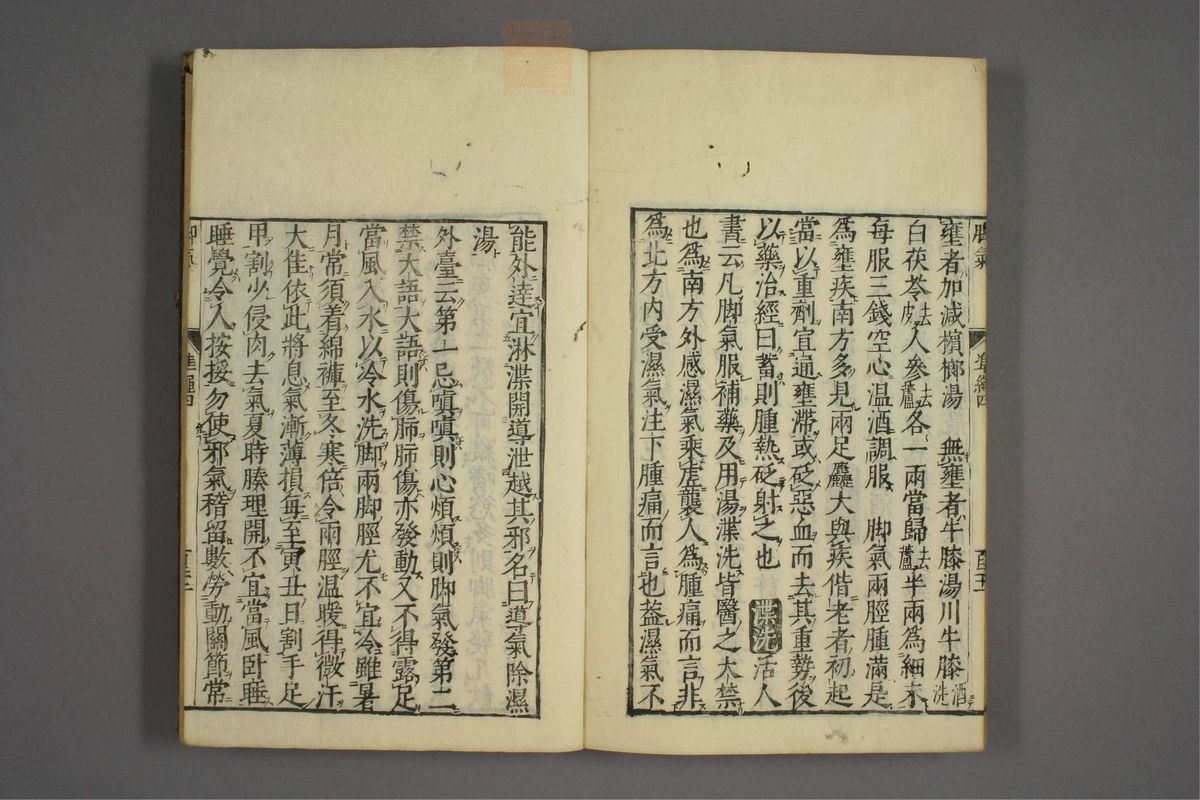 壅者加減檳榔湯　無壅者牛膝湯川牛膝酒洗
白茯苓去皮人參去蘆各一兩當歸去蘆半兩爲細末
每服三錢空心温酒調服　脚氣兩脛腫滿是
爲壅疾南方多見兩足麤大與疾偕老者初起
當以重劑宜通壅滯或砭惡血而去其重勢後
以藥治經曰蓄則腫熱砭射之也　渫洗活人
書云凡脚氣服補藥及用湯渫洗皆醫之大禁
也爲南方外感濕氣乘虚襲人爲腫痛而言非
爲北方内受濕氣注下腫痛而言也葢濕氣不
能外達宜淋渫開導泄越其邪名曰導氣除濕
湯
外臺云第一忌嗔嗔則心煩煩則脚氣發第二
禁大語大語則傷肺肺傷亦發動又不得露足
當風入水以冷水洗脚兩脚脛尤不宜冷雖暑
月常須着綿褲至冬寒倍令兩脛温暖得微汗
大佳依此將息氣漸薄損每至寅丑日割手足
甲割少侵肉去氣夏時腠理開不宜當風卧睡
睡覺令人按挼勿使邪氣稽留數勞動關節常